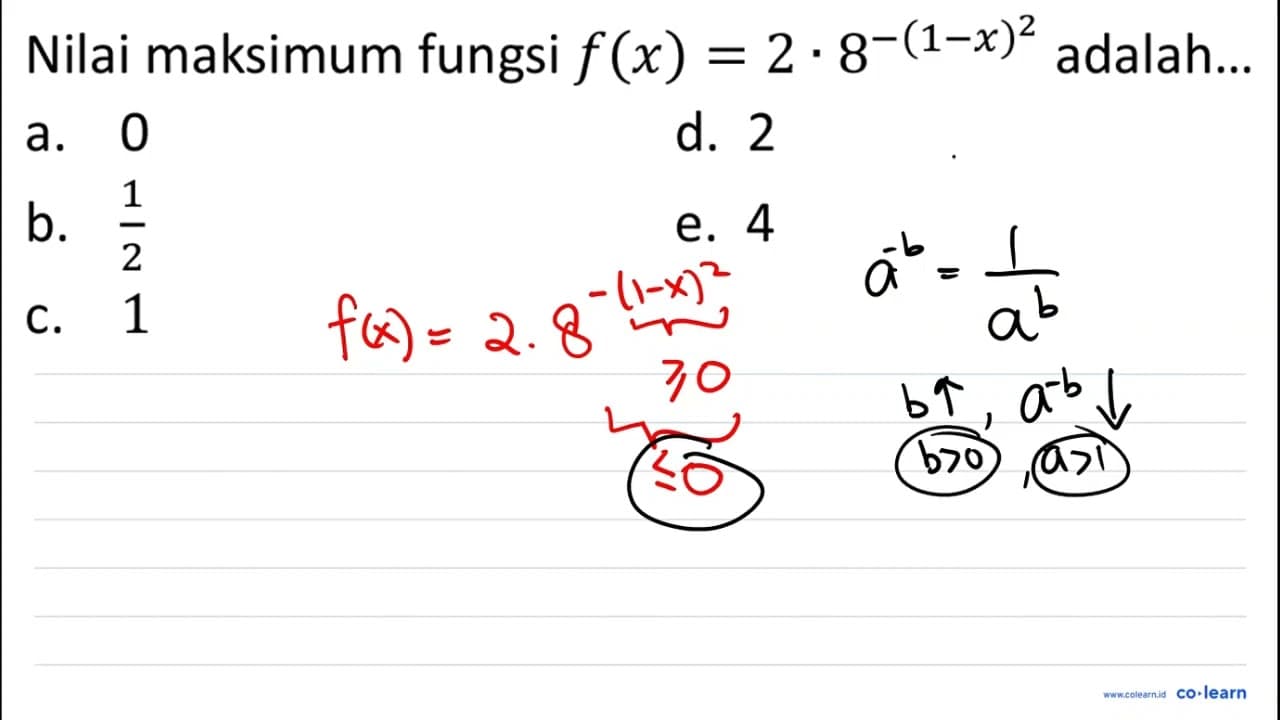 Nilai maksimum fungsi f(x) = 2 · 8^{-(1-x)^2} adalah...
a. 0
d. 2
b. 1/2
e. 4
c. 1
f(x) = 2 . 8^{-(1-x)^2}
≥ 0
≤ 0
a^{-b} = 1/a^b
b↑, a^{-b}↓
b>0, a>1
www.colearn.id co·learn